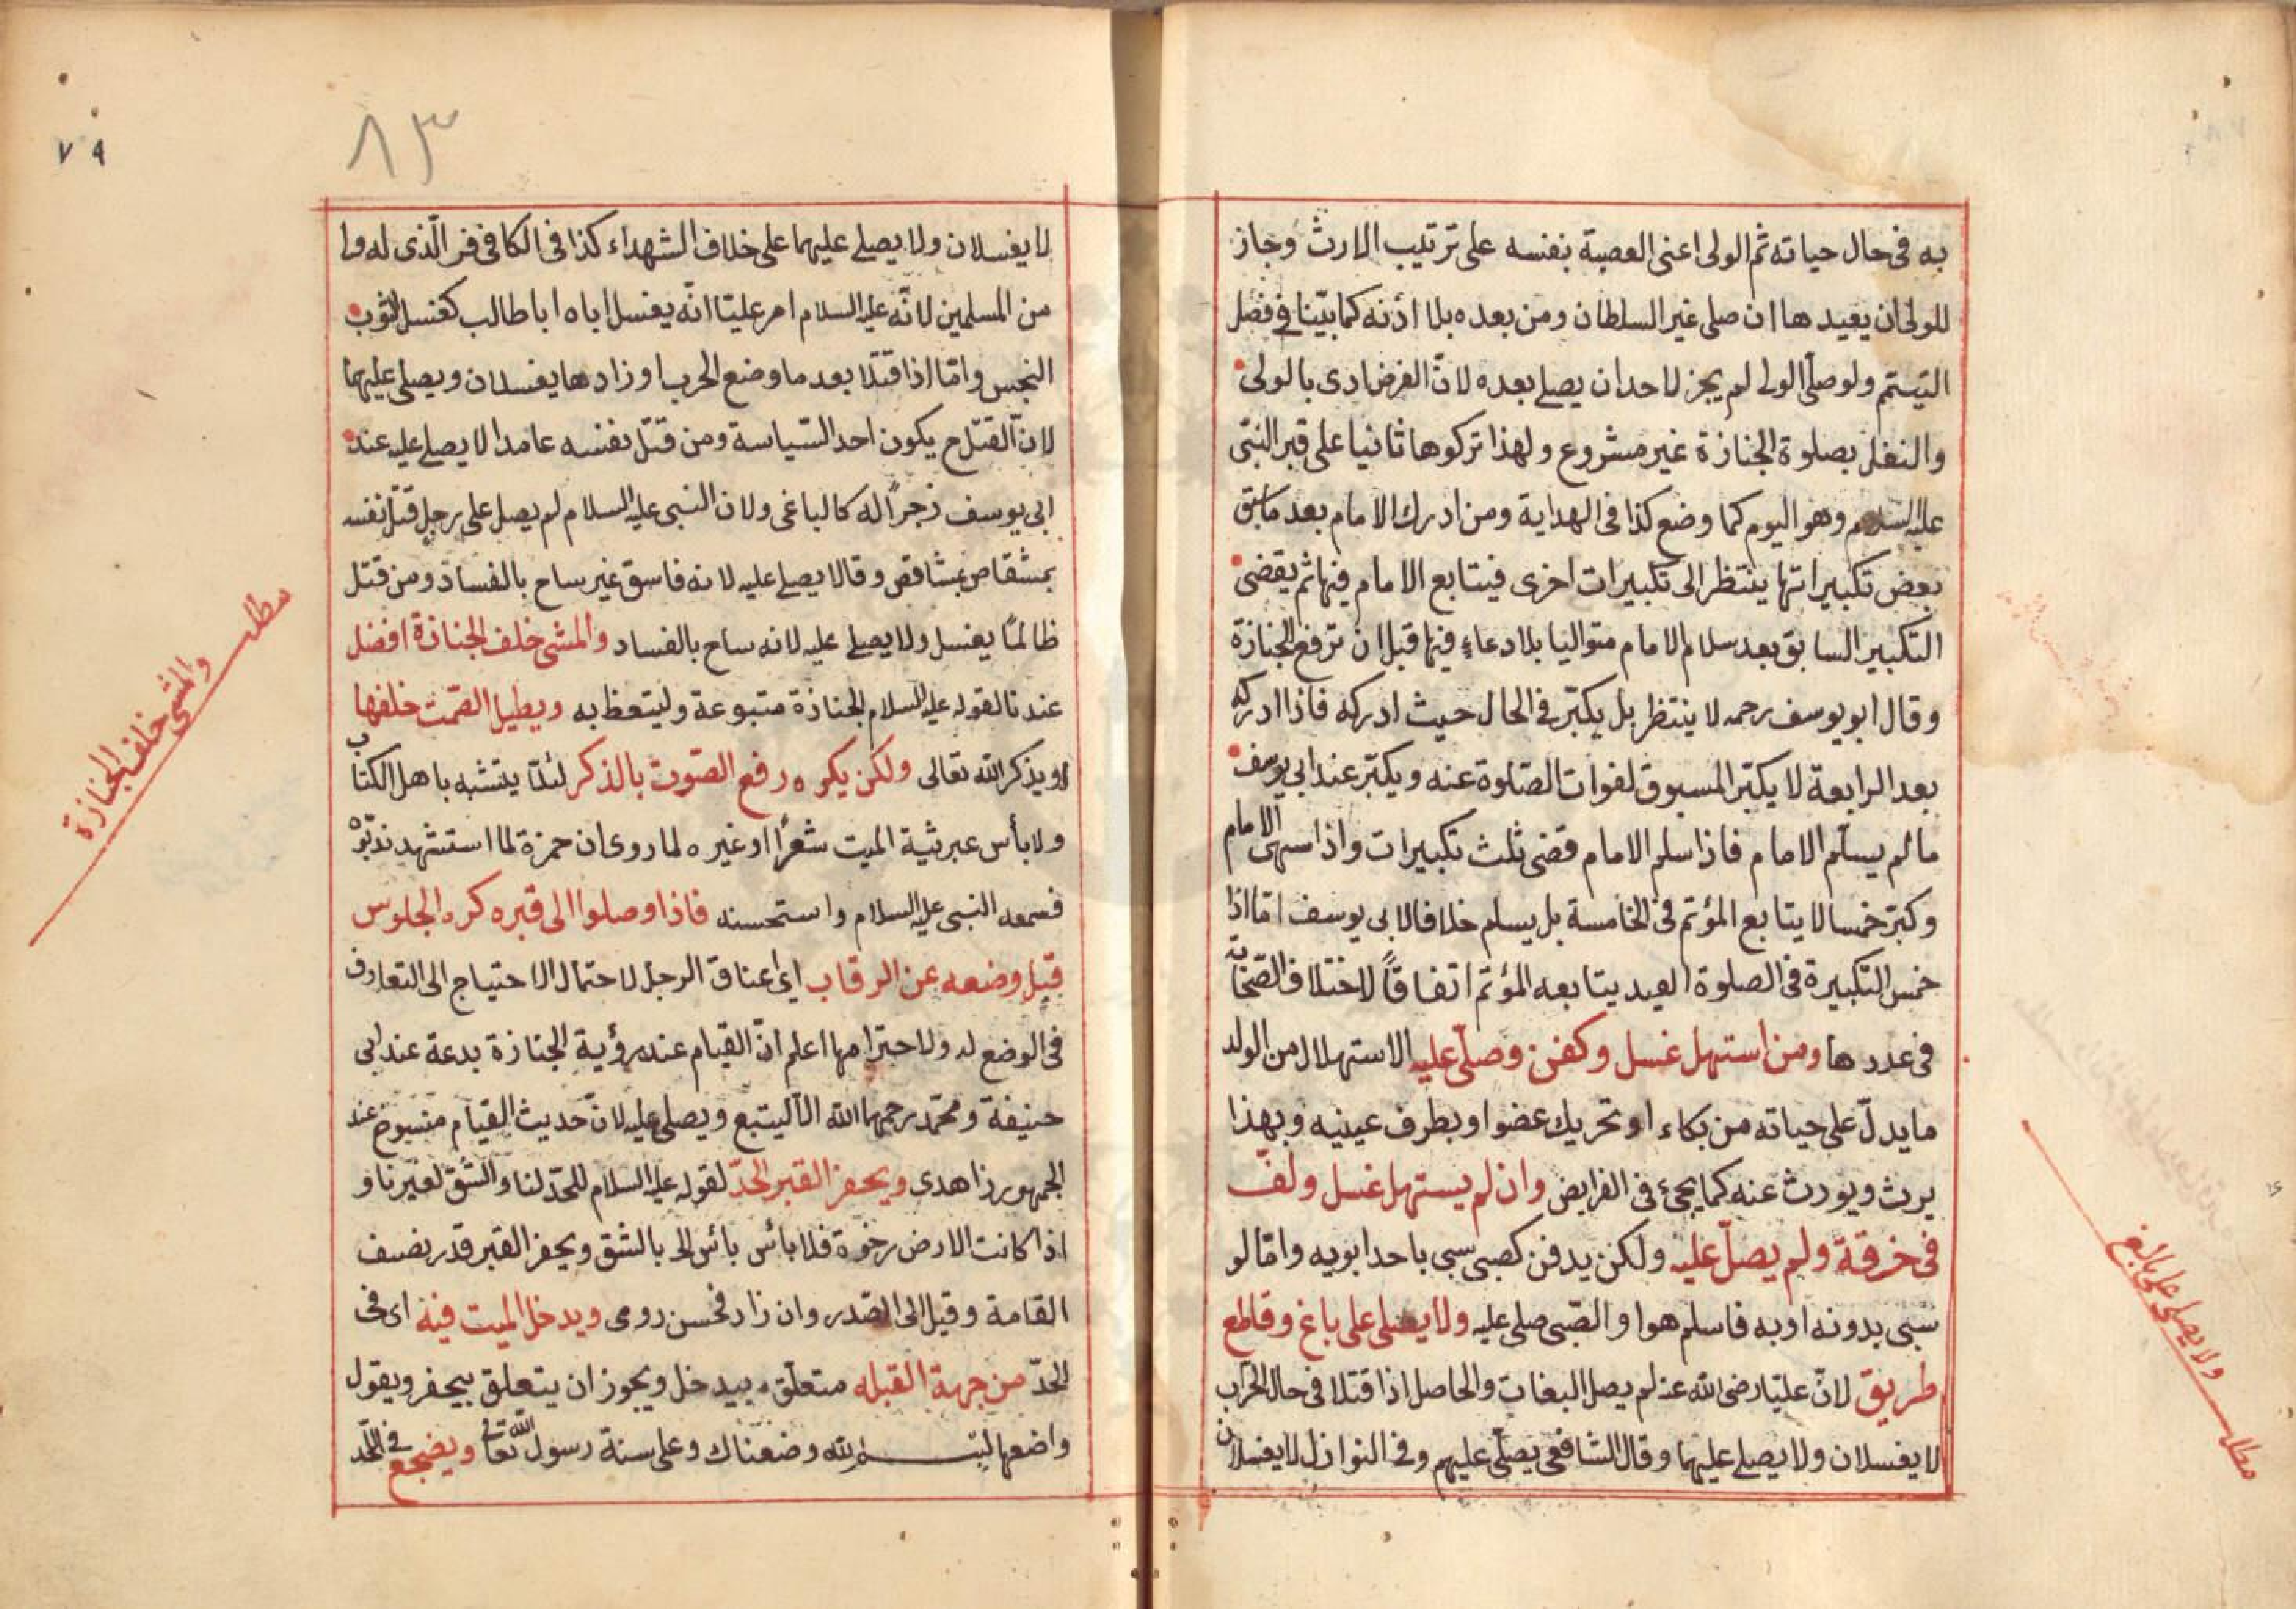 به فى حال حياته ثم الولى اعنى العصبة بنفسه على ترتيب الارث وجاز
للولى ان يعيدها ان صلى غير السلطان ومن بعده بلا اذنه كما بيّنا فى فصل
التيمم ولو صلّى الولى لم يجز لاحد ان يصلى بعده لانّ الفرض ادى بالولى
والنفل بصلوة الجنازة غير مشروع ولهذا تركوها ثانيا على قبر النبّى
عليه السلام وهو اليوم كما وضع كذا فى الهداية ومن ادرك الامام بعد ما سبق
بعض تكبيراتها ينتظر الى تكبيرات اخرى فيتابع الامام فيها ثم يقضى
التكبير السابق بعد سلام الامام متواليا بلا دعاءٍ فيها قبل ان ترفع الجنازة
وقال ابو يوسف رحمه لا ينتظر بل يكبّر فى الحال حيث ادركه فاذا ادركه
بعد الرابعة لا يكبّر المسبوق لفوات الصّلوة عنه ويكبّر عند ابى يوسف
ما لم يسلّم الامام فاذا سلم الامام قضى ثلث تكبيرات واذا سهى الامام
وكبّر خمسا لا يتابع المؤتم فى الخامسة بل يسلم خلافا لابى يوسف امّا اذا
خمس التكبيرة فى الصلوة العيد يتابعه المؤتم اتفاقاً لاختلاف الصّحابة
فى عددها ومن استهل غسل وكفن وصلّى عليه الاستهلال من الولد
ما يدلّ على حياته من بكاء او تحريك عضو او بطرف عينيه وبهذا
يرث ويورث عنه كما يجئ فى الفرايض وان لم يستهل غسل ولفّ
فى خرقة ولم يصلّ عليه ولكن يدفن كصبى سبى باحد ابويه وامّا لو
سبى بدونه او به فاسلم هو او الصّبى صلى عليه ولا يصلى على باغ وقاطع
طريق لانّ عليّا رضى الله عنه لم يصل البغات والحاصل اذا قتلا فى حال الحراب
لا يغسلان ولا يصلى عليهما وقال الشافعى يصلّى عليهم وفى النوازل لا يغسلان
مطلب ولا يصلى على باغ
٧٩
٨٣
لا يغسلان ولا يصلى عليهما على خلاف الشهداء كذا فى الكافى الّذى له ولى
من المسلمين لانّه عليه السلام امر عليّا انّه يغسل اباه ابا طالب كغسل الثوب
النجس وامّا اذا قتلا بعد ما وضع الحرب اوزادها يغسلان ويصلى عليهما
لانّ القتل ح يكون احد السّياسة ومن قتل نفسه عامدا لا يصلى عليه عند
ابى يوسف زجراً له كالباغى ولان النبى عليه السلام لم يصل على رجل قتل نفسه
بمشقاص بمشاقص وقالا يصلى عليه لانه فاسق غير ساح بالفساد ومن قتل
ظالمًا يغسل ولا يصلى عليه لانه ساح بالفساد والمشى خلف الجنازة افضل
عندنا لقوله عليه السلام الجنازة متبوعة وليتعظ به ويطيل الصّمت خلفها
او يذكر الله تعالى ولكن يكره رفع الصّوت بالذكر لئلّا يتشبه باهل الكتاب
ولا بأس عبرثية الميت شعرًا او غيره لما روى ان حمزة لما استشهد
فسمعه النبى عليه السلام واستحسنه فاذا وصلوا الى قبره كره الجلوس
قبل وضعه عن الرقاب اى اعناق الرجل لاحتمال الاحتياج الى التعاون
فى الوضع له ولاحترامها اعلم انّ القيام عند رؤية الجنازة بدعة عند ابى
حنيفة ومحمّد رحمهما الله الّا ليتبع ويصلى عليه لانّ حديث القيام منسوخ عند
الجمهور زاهدى ويحفر القبر لحدّ لقوله عليه السلام للحدّ لنا والشّق لغيرنا و
اذا كانت الارض رخوة فلا بأس بائس الى بالشّق ويحفر القبر قدر نصف
القامة وقيل الى الصّدر وان زاد فحسن رومى ويدخل الميت فيه اى فى
الحدّ من جهة القبله متعلّق بيدخل ويجوز ان يتعلق بيحفر ويقول
واضعها بسم الله وضعناك وعلى سنة رسول الله تعالى ويضجع فى اللحد
مطلب والمشى خلف الجنازة